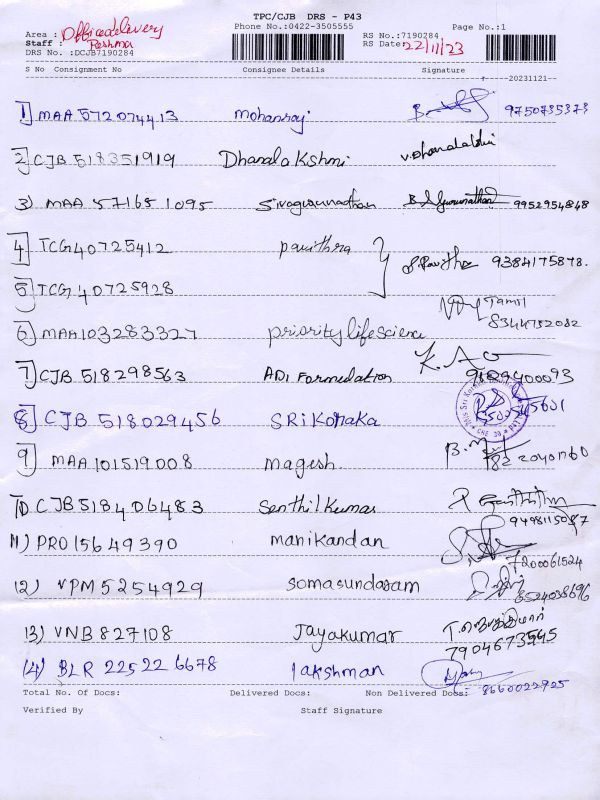 TPC/CJB DRS - P43
Phone No.:0422-3505555
Page No.:1
Area : Office delivery
Staff : Reshma
DRS No. :DCJB7190284
RS No.:7190284
RS Date: 22/11/23
S No Consignment No Consignee Details Signature
20231121--
1) MAA 572074413 Mohanraj 9750735373
2) CJB 518351919 Dhanalakshmi V. Dhanalakshmi
3) MAA 571651095 Sivagurunathan 9952954848
4) TCG 40725412 pavithra 9384175878.
5) TCG 40725928
Tamil
8344752082
6) MAA103283327 priority life science
7) CJB 518298563 ADI Formulation
8) CJB 518029456 SRI Konaka
9) MAA 101519008 magesh
10) CJB 518406483 Senthil Kumar
11) PRO15649390 manikandan
7200061524
12) VPM 5254929 Somasundaram
8524038696
13) VNB 827108 Jayakumar
7904673545
14) BLR 225226678 lakshman
8660022925
Total No. Of Docs: Delivered Docs: Non Delivered Docs:
Verified By Staff Signature